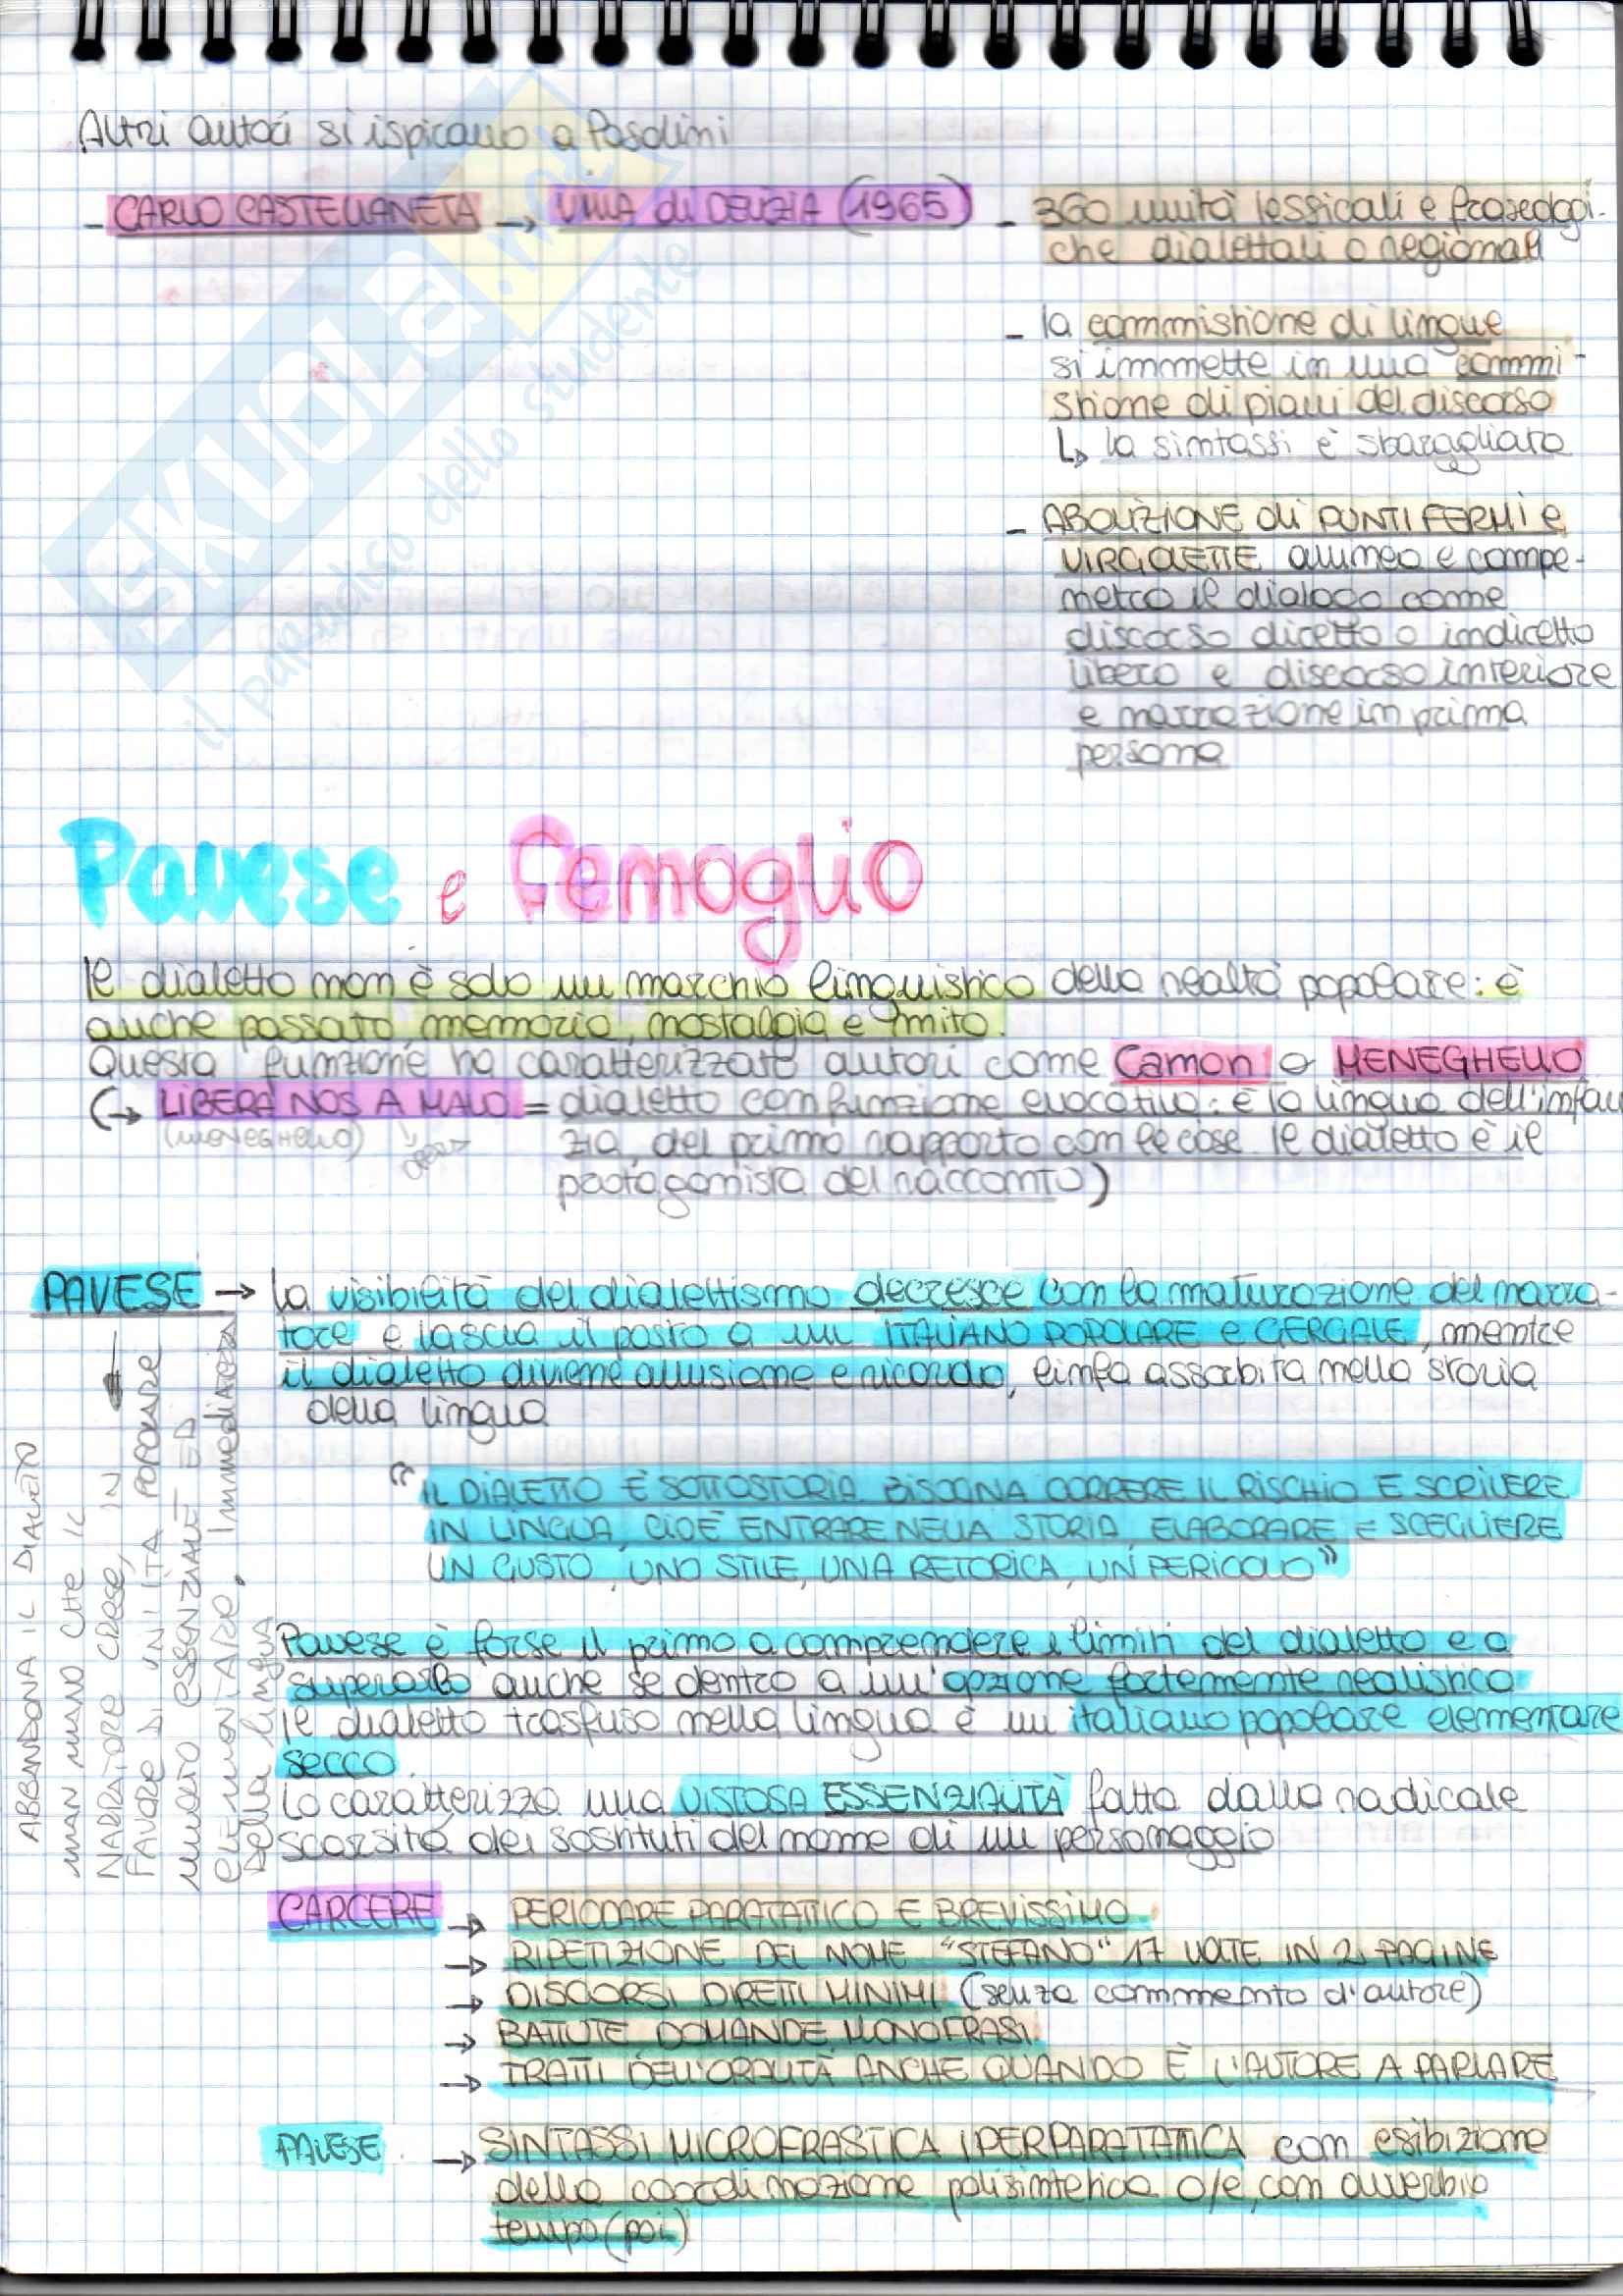 Altri autori si ispirano a Pasolini
- CARLO CASTELLANETA → VILLA di DELIZIA (1965) - 360 unità lessicali e fraseologi-
che dialettali o regionali
- la commistione di lingue
si immette in una commi-
stione di piani del discorso
↳ la sintassi è sbaragliata
- ABOLIZIONE di PUNTI FERMI e
VIRGOLETTE
metro il dialogo come
discorso diretto o indiretto
libero e discorso interiore
e narrazione in prima
persona
Pavese e Fenoglio
Il dialetto non è solo un marchio linguistico della realtà popolare: è
anche passato, memoria, nostalgia e mito.
Questa funzione ha caratterizzato autori come Camon o MENEGHELLO
(→ LIBERA NOS A MALO = dialetto con funzione evocativa: è la lingua dell'infan
(MENEGHELLO) zia, del primo rapporto con le cose. Il dialetto è il
protagonista del racconto)
PAVESE → La visibilità del dialettismo decresce con la maturazione del narra-
tore e lascia il posto a un ITALIANO POPOLARE e GERGALE, mentre
il dialetto diviene allusione e ricordo, linfa assorbita nella storia
della lingua
"IL DIALETTO È SOTTOSTORIA. BISOGNA CORRERE IL RISCHIO E SCRIVERE
IN LINGUA, CIOÈ ENTRARE NELLA STORIA, ELABORARE E SCEGLIERE
UN GUSTO, UNO STILE, UNA RETORICA, UN PERICOLO"
ABBANDONA IL DIALETTO
MAN MANO CHE IL
NARRATORE CRESCE, IN
FAVORE DI UN ITA POPOLARE
MOLTO ESSENZIALE ED
ELEMENTARE. Immediatezza
della lingua
Pavese è forse il primo a comprendere i limiti del dialetto e a
superarlo anche se dentro a un'opzione fortemente realistica
Il dialetto trasfuso nella lingua è un italiano popolare elementare
secco.
Lo caratterizza una VISTOSA ESSENZIALITÀ fatta dalla radicale
scarsità dei sostituti del nome di un personaggio
CARCERE → PERIODARE PARATATTICO E BREVISSIMO
→ RIPETIZIONE DEL NOME "STEFANO" 17 VOLTE IN 2 PAGINE
→ DISCORSI DIRETTI MINIMI (senza commento d'autore)
→ BATTUTE DOMANDE MONOFRASI.
→ TRATTI DELL'ORALITÀ ANCHE QUANDO È L'AUTORE A PARLARE
PAVESE → SINTASSI MICROFRASTICA IPERPARATATTICA con esibizione
della coordinazione polisintetica o/e, con avverbio
tempo (poi)
SKUOLA.net
il paradiso dello studente